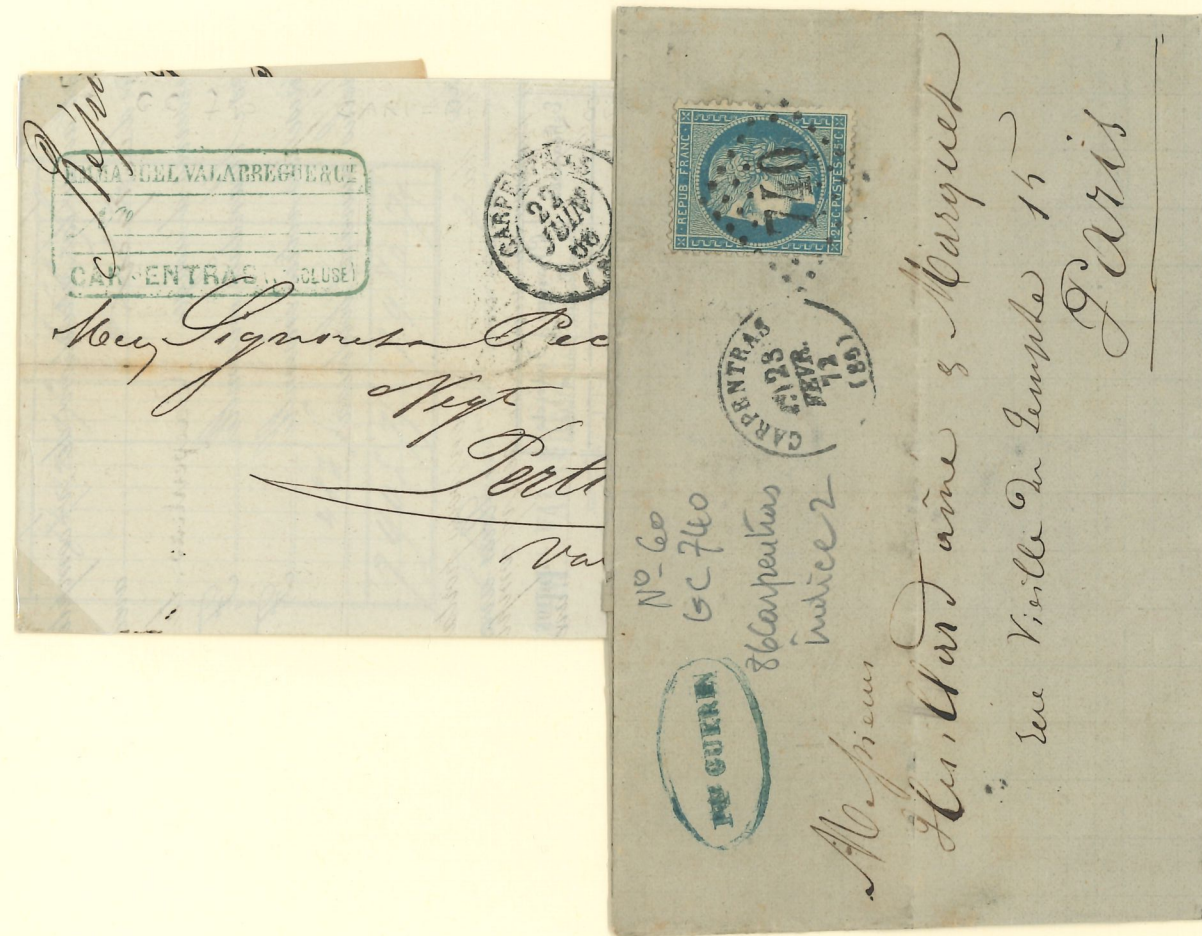 EMMANUEL VALABREGUE & Cie
CARPENTRAS (VAUCLUSE)
CARPENTRAS
22
JUIN
66
Perth
REPUB. FRANC.
25 C. POSTES 25 C.
740
CARPENTRAS
23
FEVR.
72
(86)
No-60
GC 740
86 Carpentras
indice 2
GUERIN
Messieurs
Huillard aîné & Marquet
Rue Vieille Du Temple 15
Paris